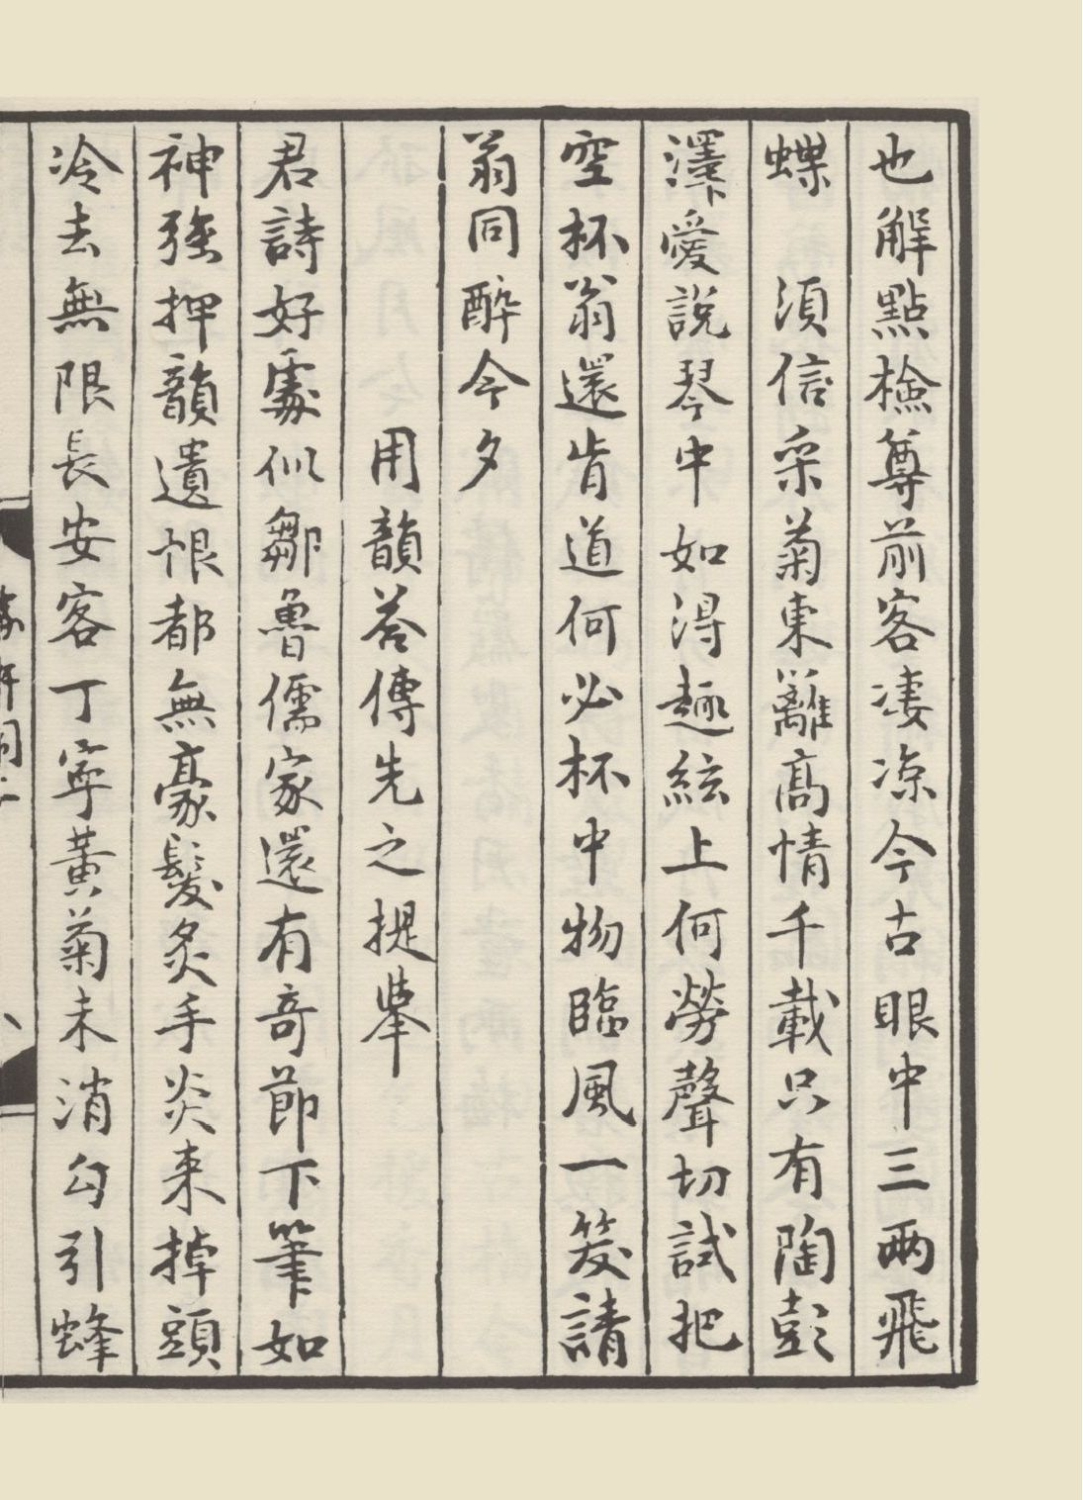 也解點檢尊前客淒涼今古眼中三兩飛
蝶　須信采菊東籬高情千載只有陶彭
澤愛說琴中如得趣絃上何勞聲切試把
空杯翁還肯道何必杯中物臨風一笑請
翁同醉今夕
用韻答傅先之提舉
君詩好處似鄒魯儒家還有奇節下筆如
神強押韻遺恨都無毫髮炙手炎來掉頭
冷去無限長安客丁寧黃菊未消勾引蜂